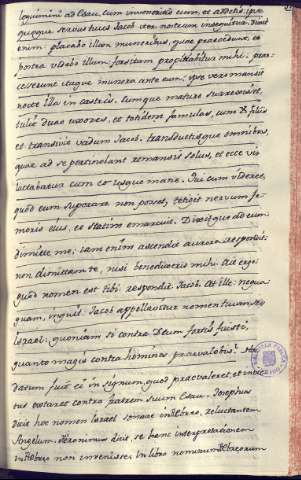 loquimini ad Esau, cum inveneritis eum, et addetis: ipse
quoque servus tuus Jacob iter nostrum insequitur. Dixit
enim: placabo illum muneribus, quae praecedunt, et
postea videbo illum: forsitam propitiabitur mihi. prae-
cesserunt itaque munera ante eum: ipse vero mansit
nocte illa in castris. Cumque mature surrexisset,
tulit duas uxores, et totidem famulas, cum filiis
et transivit vadum Jacob. transductisque omnibus,
quae ad se pertinebant remansit solus, et ecce vir
luctabatur cum eo usque mane. Qui cum videret,
quod eum superare non posset, tetigit nervum fe-
moris eius, et statim emarcuit. Dixitque ad eum
dimitte me; iam enim ascendit aurora respondit:
non dimittam te, nisi benedixeris mihi. Ait ergo
quod nomen est tibi: respondit Jacob. at ille: nequa
quam, inquit Jacob appellabitur nomen tuum, sed
Israel: quoniam si contra Deum fortis fuisti,
quanto magis contra homines praevalebis?
datum fuit ei in signum, quod praevaleret, et
contra fratrem suum Esau. Josephus
dicit hoc nomen Israel sonare in Hebreo, reluctantem
Angelum. Hieronimus dicit, se hanc interpretationem
in Hebreo non invenisse. In libro nominum Hebreorum